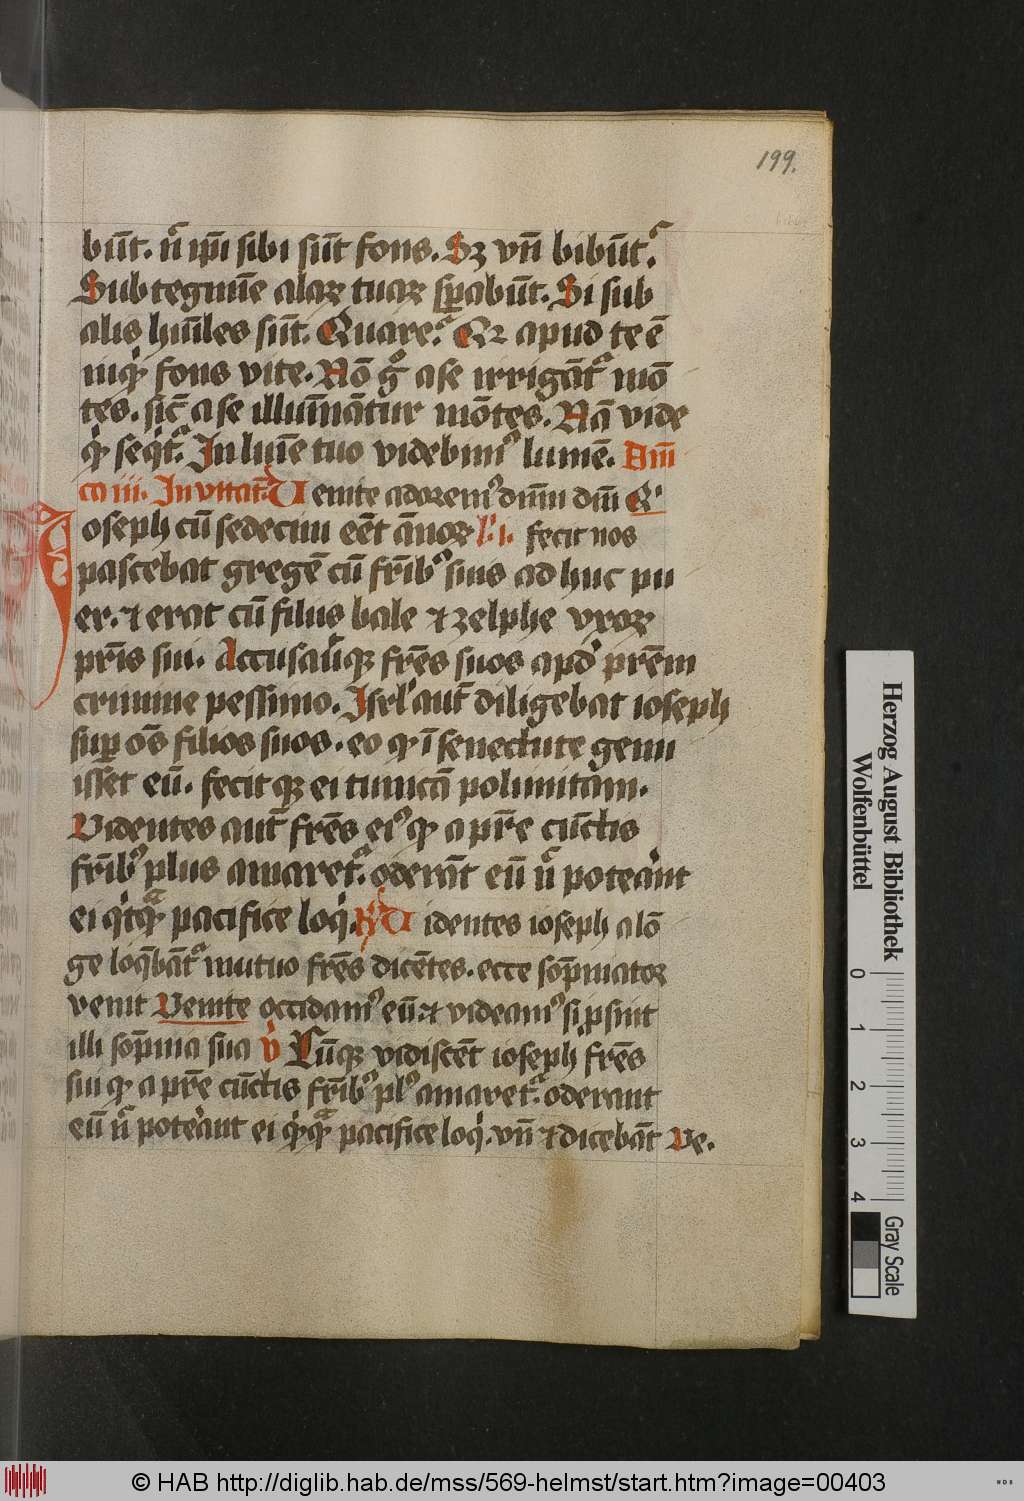 199.
būt. n̄ ip̄i sibi sūt fons. Sʒ vn̄ bibūt.
Sub tegmīe alaꝝ tuaꝝ sꝑabūt. Si sub
alis hūiles sūt. Quare. Qꝛ apud te ē
inqͥ fons vite. Nō gͦ a se irrigāt᷑ mō
tes. sic̄ a se illumīantur mōtes. Nā vide
qͥ seqͥt᷑. In lumīe tuo videbimꝰ lumē. D̄m̄
ca iii. Invitat᷑. Venite adoremꝰ dn̄m dm̄ Qͥ
oseph cū sedecim eēt ānoꝝ lͦ. i. fecit nos
pascebat gregē cū fr̄ibꝰ suis ad huc pu
er. ⁊ erat cū filiis bale ⁊ zelphe vxoꝝ
pr̄is sui. Accusauͥtqꝫ fr̄es suos apd̛ pr̄em
crimine pessimo. Isrl̛ aut̄ diligebat ioseph
suꝑ oēs filios suos. eo qͥ ī senectute genu
iss̄et eū. fecitqꝫ ei tunicā polimitam.
Videntes aut̄ fr̄es eiꝰ qͥ a pr̄e cūctis
fr̄ibꝰ plus amaret᷑. oderāt eū n̄ poteͣnt
ei qͥtqͣ pacifice loqͥ. ꝶ Videntes ioseph a lō
ge loqͣbāt᷑ mutuo fr̄es dicētes. ecce sōp̄niator
venit Venite occidamꝰ eū ⁊ videamꝰ si ꝓsint
illi sōp̄nia sua ꝟ Cūqꝫ vidiscēt ioseph fr̄es
sui qͥ a pr̄e cūctis fr̄ibꝰ plꝰ amaret᷑. oderant
eū n̄ poteͣnt ei qͥqͣ pacifice loqͥ. vn̄ ⁊ dicebāt Ve.
Herzog August Bibliothek
Wolfenbüttel
0 1 2 3 4
Gray Scale
© HAB http://diglib.hab.de/mss/569-helmst/start.htm?image=00403